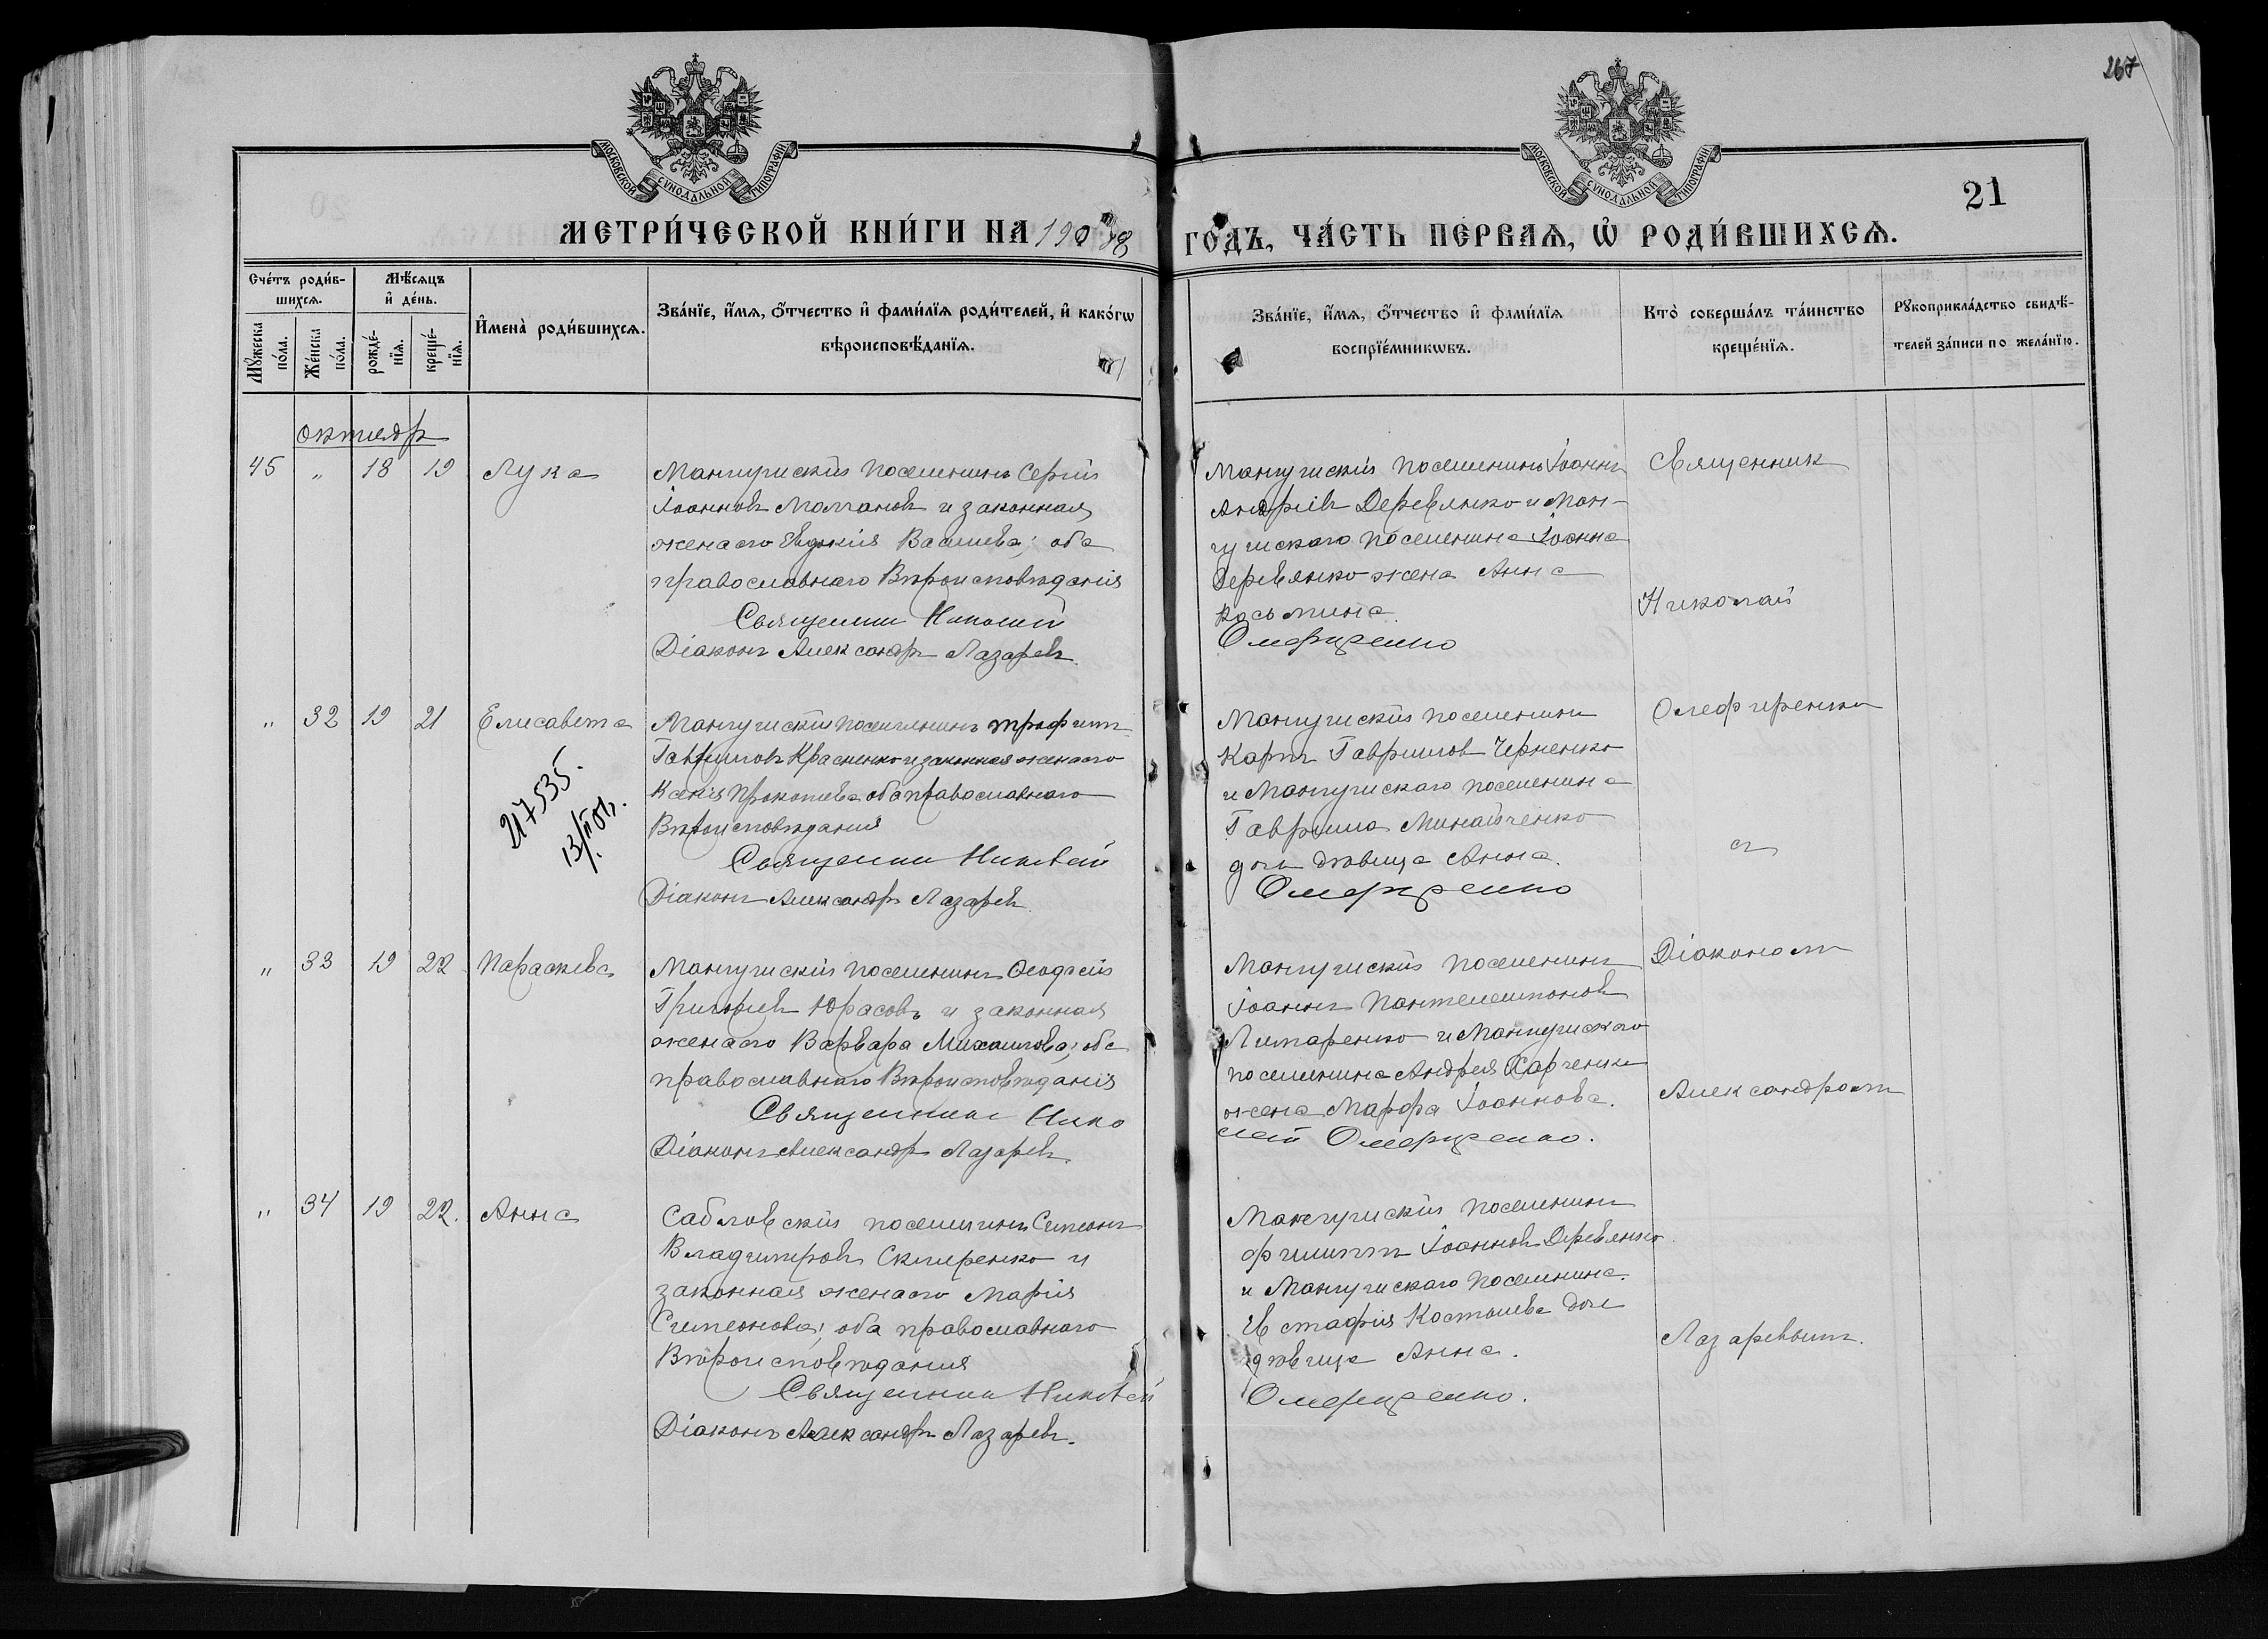 267
МОСКОВСКОЙ СУНОДАЛЬНОЙ ТИПОГРАФІИ
МОСКОВСКОЙ СУНОДАЛЬНОЙ ТИПОГРАФІИ
21
МЕТРИ́ЧЕСКОЙ КНИ́ГИ НА 190
ГОДЪ, ЧА́СТЬ ПЕРВАѦ, Ѡ҆ РОДИ́ВШИХСѦ.
Сче́тъ роди́в-
шихсѧ.
Мѣ́сѧцъ
и҆ де́нь.
Мꙋ́жеска
по́ла.
Же́нска
по́ла.
рожде́-
нїѧ.
креще́-
нїѧ.
И҆мена̀ роди́вшихсѧ.
Зва́нїе, и҆́мѧ, ѻ҆́тчество и҆ фами́лїѧ роди́телей, и҆ како́гѡ
вѣроисповѣ́данїѧ.
Зва́нїе, и҆́мѧ, ѻ҆́тчество и҆ фами́лїѧ
воспрїе́мникѡвъ.
Кто̀ соверша́лъ та́инство
креще́нїѧ.
Рꙋкоприкла́дство свидѣ́-
телей за́писи по жела́нїю.
октябр
45 " 18 19 Лука
Мангушскій поселянинъ Сергій
Іоанновъ Молчановъ и законная
жена его Евдокія Васильева; оба
православнаго Вѣроисповѣданія
Священник Николай
Діаконъ Александръ Лазаревъ.
Мангушскій поселянинъ Іоаннъ
Андреевъ Деревянко и Ман-
гушскаго поселянина Іоанна
Деревянко жена Анна
Косьмина.
Олефиренко
Священник
Николай
" 32 19 21 Елисавета
217535.
13/II 01г.
Мангушскій поселянинъ Трофимъ
Гавриловъ Красненко и законная жена его
Ксенія Прокопиева оба православнаго
Вѣроисповѣданія
Священник Николай
Діаконъ Александръ Лазаревъ
Мангушскій поселянинъ
Карпъ Гавриловъ Черненко
и Мангушскаго поселянина
Гавриила Минайченко
дочь дѣвица Анна.
Олефиренко
Олефиренко
съ
" 33 19 22 Параскева
Мангушскій поселянинъ Ѳеодосій
Григорьевъ Юрасовъ и законная
жена его Варвара Михаилова; оба
православнаго Вѣроисповѣданія
Священник Нико
Діаконъ Александръ Лазаревъ.
Мангушскій поселянинъ
Іоаннъ Пантелеимоновъ
Лимаренко и Мангушскаго
поселянина Андрея Харченка
жена Марфа Іоаннова.
лай Олефиренко.
Діакономъ
Александромъ
" 34 19 22. Анна
Сабловскій поселянинъ Симеонъ
Владимировъ Скляренко и
законная жена его Марія
Симеонова; оба православнаго
Вѣроисповѣданія
Священник Николай
Діаконъ Александръ Лазаревъ.
Мангушскій поселянинъ
Филиппъ Іоанновъ Деревянко
и Мангушскаго поселянина
Евстафія дочь
дѣвица Анна.
Олефиренко.
Лазаревымъ.